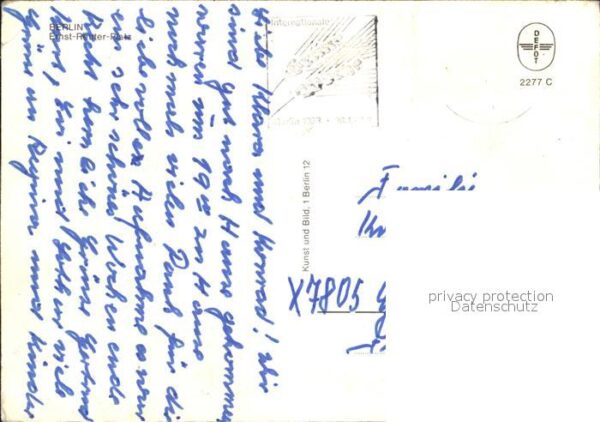 BERLIN
Ernst-Reuter-Platz
Internationale
DEFOT
2277 C
Kunst und Bild, 1 Berlin 12
Liebe Klara und Konrad! Wir
sind gut nach Hause gekommen
waren um 19 zu Hause
noch mals vielen Dank für die
liebevolle Aufnahme es war
ein sehr schönes Wochenende
Recht herzliche Grüße Gertrud
Kurt, Evi und Lothar viele
Grüße von Regina und Kinder
Familie
X7805
privacy protection
Datenschutz